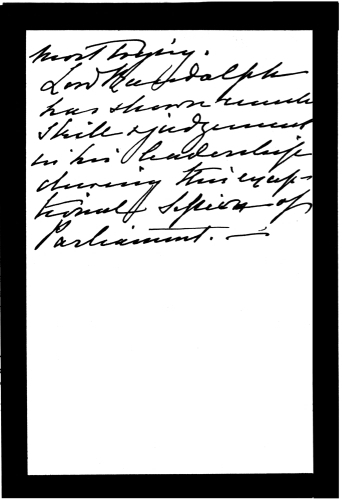 most trying.
Lord Randolph
has shown much
skill & judgement
in his leadership
during this excep
tional Session of
Parliament. —